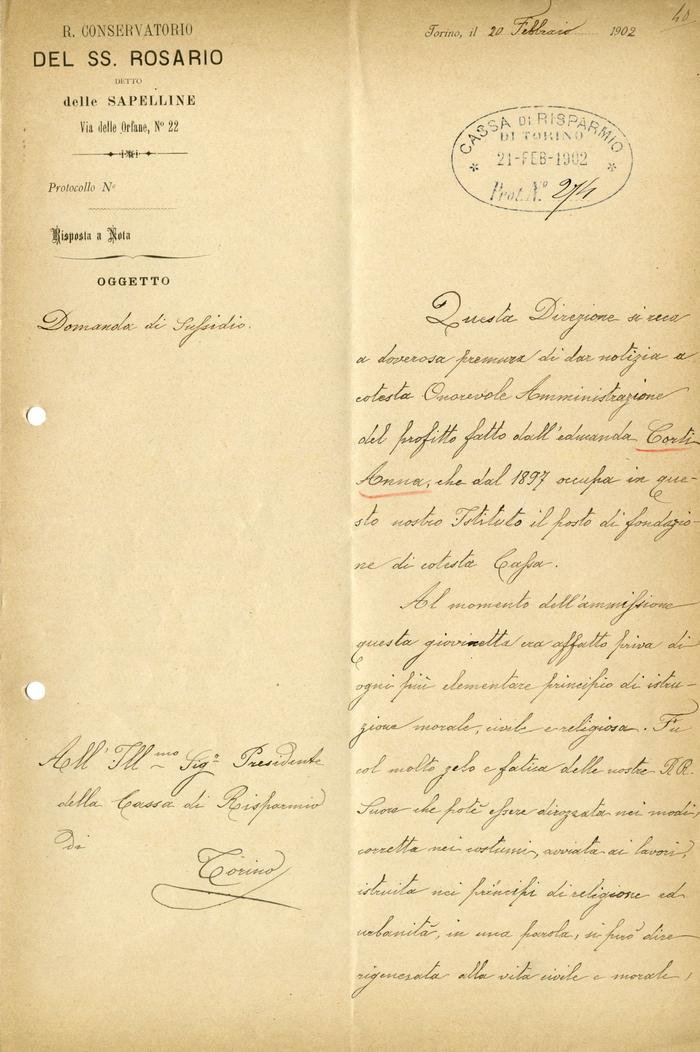 R. CONSERVATORIO
DEL SS. ROSARIO
DETTO
delle SAPELLINE
Via delle Orfane, Nº 22
Protocollo Nº
Risposta a Nota
OGGETTO
Domanda di Sussidio.
All' Ill.mo Sigr. Presidente
della Cassa di Risparmio
di
Torino
40
Torino, il 20 Febbraio 1902
CASSA DI RISPARMIO
DI TORINO
21-FEB-1902
Prot. Nº 274
Questa Direzione si reca
a doverosa premura di dar notizia a
cotesta Onorevole Amministrazione
del profitto fatto dall'educanda Corti
Anna, che dal 1897 occupa in que-
sto nostro Istituto il posto di fondazio-
ne di cotesta Cassa.
Al momento dell'ammissione
questa giovinetta era affatto priva di
ogni più elementare principio di istru-
zione morale, civile e religiosa. Fu
col molto zelo e fatica delle nostre RR.
Suore che potè essere dirozzata nei modi,
corretta nei costumi, avviata ai lavori,
istruita nei principi di religione ed
urbanità, in una parola, si può dire
rigenerata alla vita civile e morale,